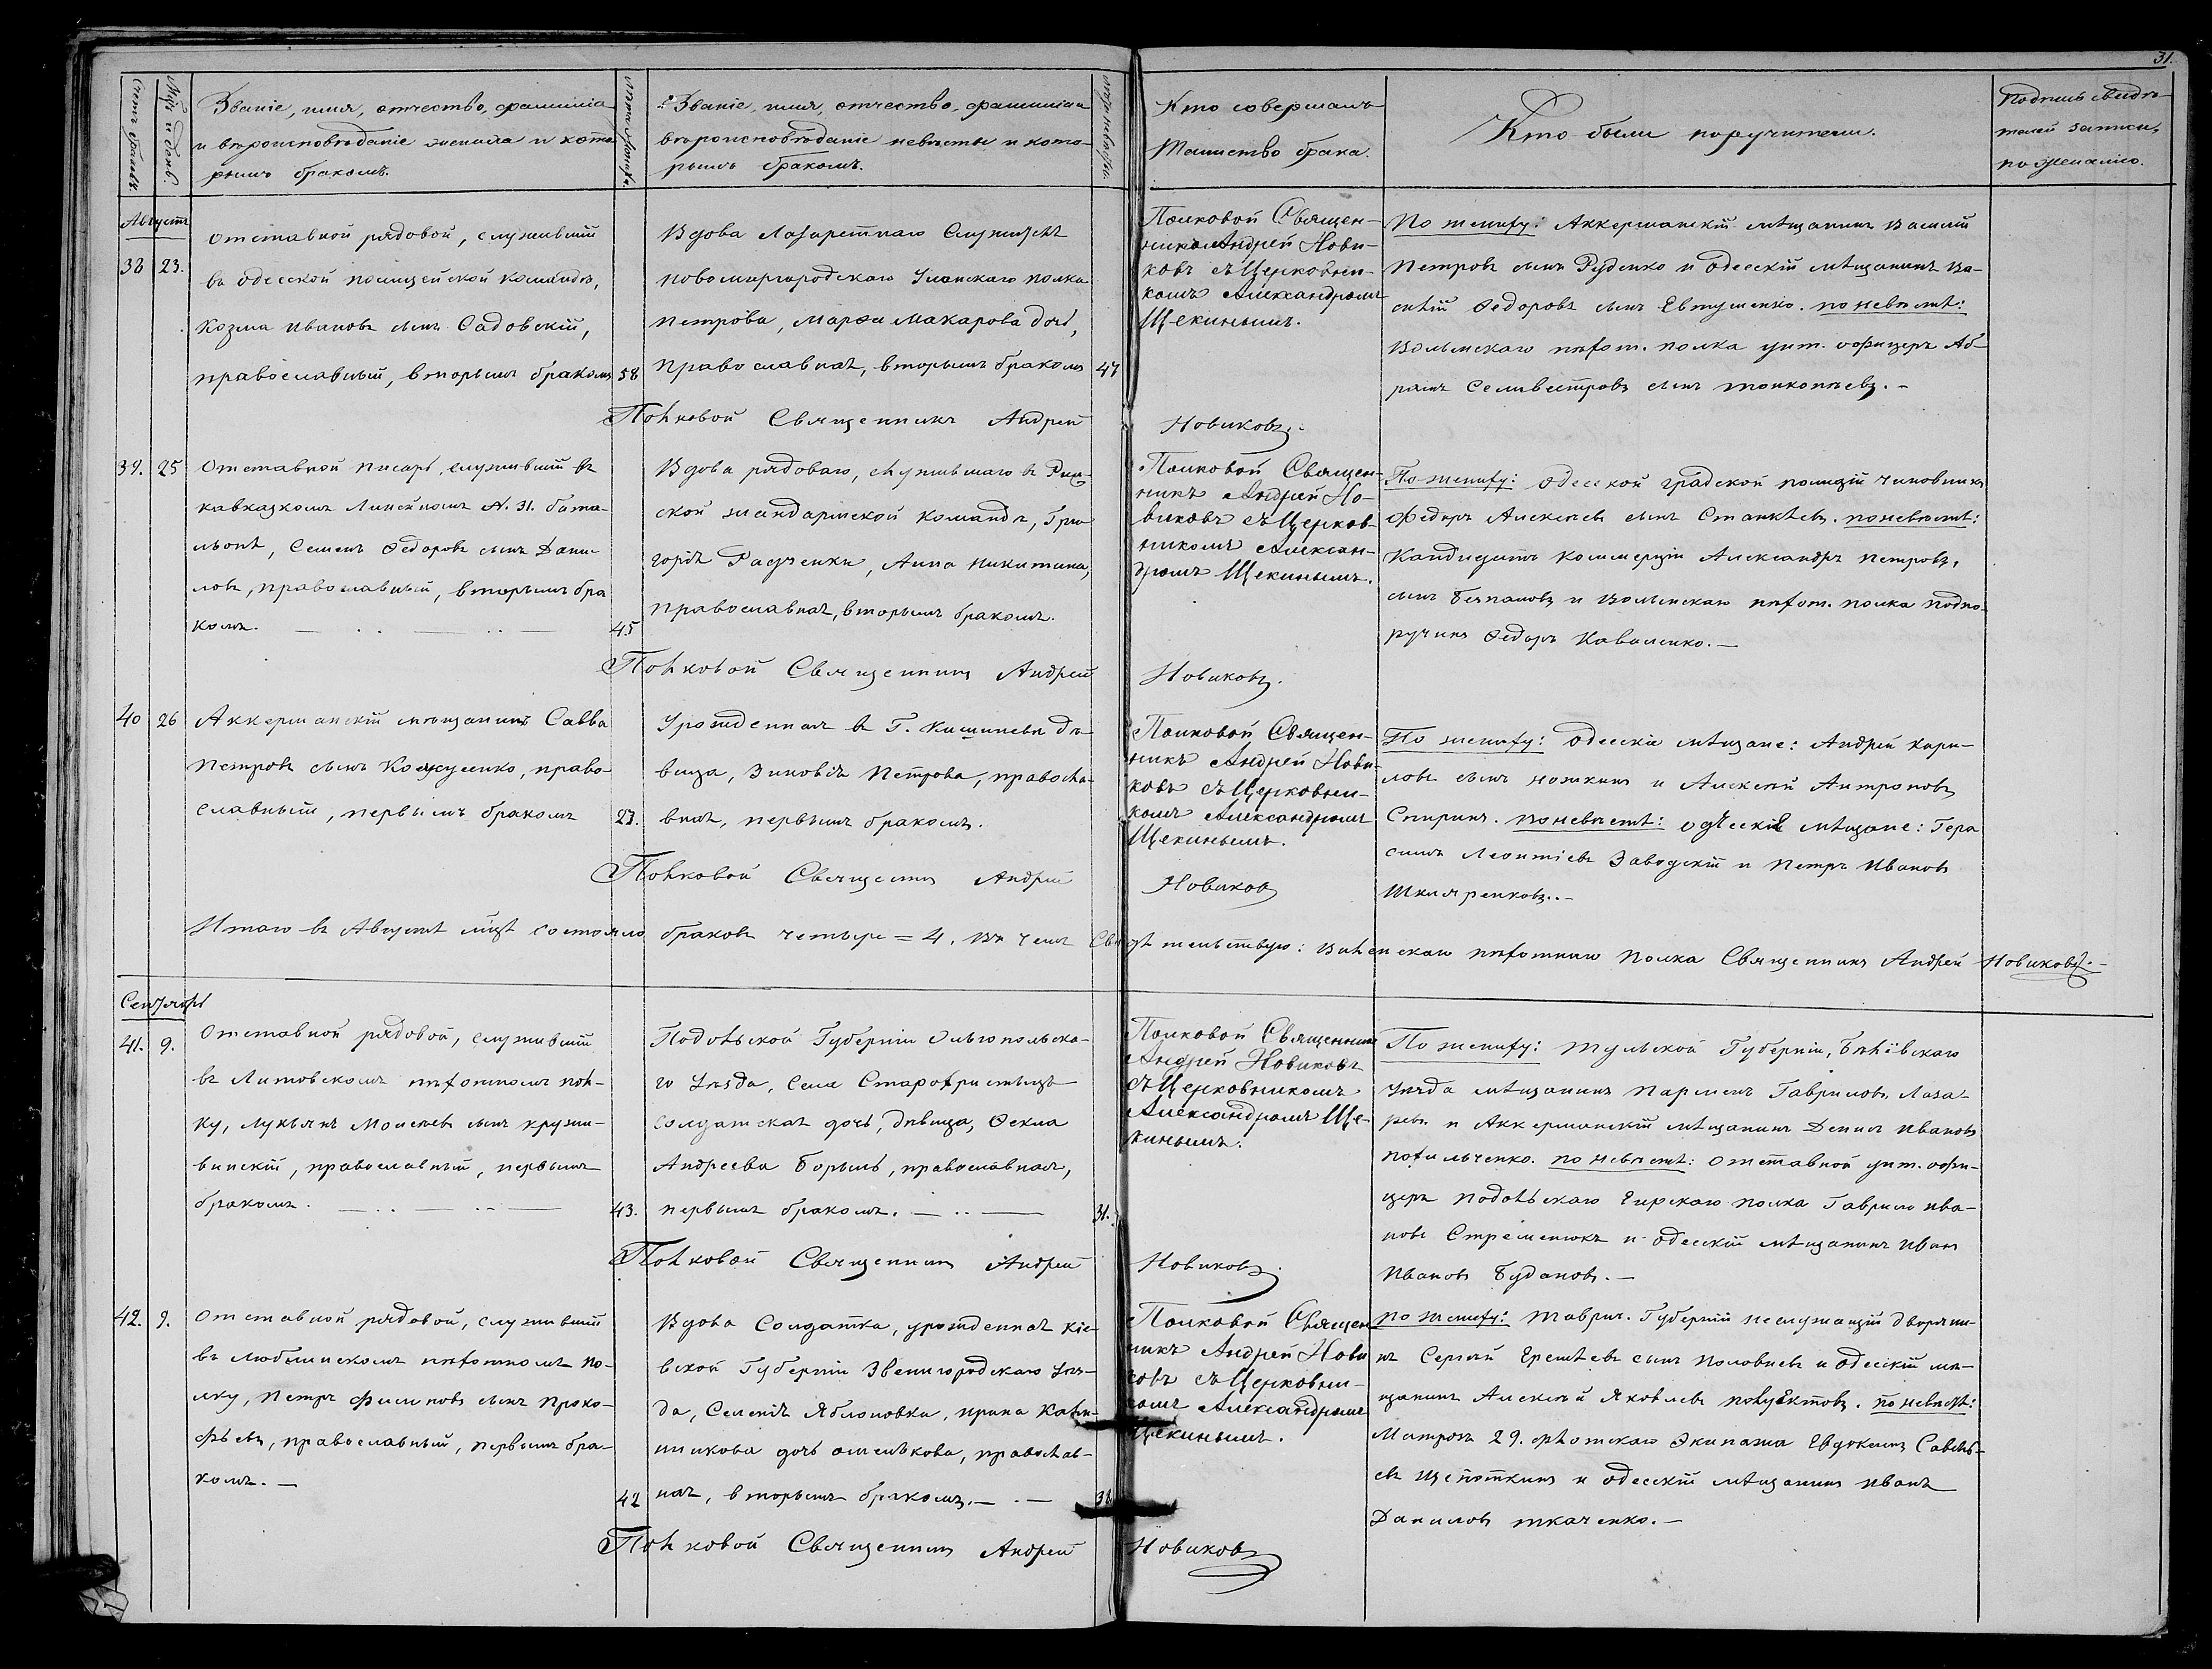 31.
Счетъ браковъ.
Мѣс. и день.
Званіе, имя, отчество, фамилія
и вѣроисповѣданіе жениха и кото
рымъ бракомъ.
Лѣта жениха.
Званіе, имя, отчество, фамилія и
вѣроисповѣданіе невѣсты и кото-
рымъ бракомъ.
Лѣта невѣсты.
Кто совершалъ
Таинство брака.
Кто были поручители.
Подпись свидѣ-
телей записи,
по желанію.
Августъ
38 23.
Отставной рядовой, служившій
въ одесской полицейской командѣ,
Козма Ивановъ сынъ Садовскій,
православный, вторымъ бракомъ
58
Вдова Лазаретнаго Служителя
новомиргородскаго Уланскаго полка
Петрова, Марѳа Макарова дочь,
православная, вторымъ бракомъ
47
Полковой Священ-
никъ Андрей Нови-
ковъ съ Церковни-
комъ Александромъ
Щекинымъ.
По жениху: Аккерманскій мѣщанинъ Василій
Петровъ сынъ Руденко и Одесскій мѣщанинъ Ва-
силій Ѳедоровъ сынъ Евтушенко. по невѣстѣ:
Волынскаго пѣхот. полка унт. офицеръ Аб-
рамъ Селивестровъ сынъ
Полковой Священникъ Андрей Новиковъ.
39. 25
Отставной писарь, служившій въ
кавказкомъ Линейномъ N. 31. бата-
льонѣ, Семенъ Ѳедоровъ сынъ Дани-
ловъ, православный, вторымъ бра
комъ.
45
Вдова рядоваго, служившаго въ
ской жандармской командѣ, Гри
горія Радченки, Анна Никитина,
православная, вторымъ бракомъ.
Полковой Священ-
никъ Андрей Но-
виковъ съ Церков-
никомъ Алексан-
дромъ Щекинымъ.
По жениху: Одесской градской полиціи чиновникъ
Федоръ Алексѣевъ сынъ Станкѣевъ. по невѣстѣ:
Кандидатъ коммерціи Александръ Петровъ,
сынъ и волынскаго пѣхот. полка подпо-
ручикъ Ѳедоръ Коваленко.
Полковой Священникъ Андрей Новиковъ.
40 26
Аккерманскій мѣщанинъ Савва
Петровъ сынъ Кожушенко, право-
славный, первымъ бракомъ
27.
Урожденная въ Г. Кишиневѣ дѣ-
вица, Зиновія Петрова, правосла-
вная, первымъ бракомъ.
Полковой Священ-
никъ Андрей Нови-
ковъ съ Церковни-
комъ Александромъ
Щекинымъ.
По жениху: Одесскіе мѣщане: Андрей Кири-
ловъ сынъ Ножкинъ и Алексѣй Антроповъ
Спиринъ. по невѣстѣ: одесскіе мѣщане: Гера
симъ Леонтіевъ Заводскій и Петръ Ивановъ
Шкляренковъ.
Полковой Священникъ Андрей Новиковъ
Итого въ Августѣ мѣсяцѣ состояло браковъ четыре = 4, въ чемъ Свидѣтельствую: Волынскаго пѣхотнаго полка Священникъ Андрей Новиковъ.
Сентябрь
41. 9.
Отставной рядовой, служившій
въ Литовскомъ пѣхотномъ пол-
ку, Лукьянъ Моисеевъ сынъ Крули-
винскій, православный, первымъ
бракомъ.
43.
Подольской Губерніи Ольгопольска-
го Уѣзда, Села Старохристищъ
солдатская дочь, дѣвица, Ѳекла
Андреева Борыль, православная,
первымъ бракомъ.
31.
Полковой Священникъ
Андрей Новиковъ
съ Церковникомъ
Александромъ Ще-
кинымъ.
По жениху: Тульской Губерніи, Бѣлёвскаго
Уѣзда мѣщанинъ Парменъ Гавриловъ Лаза-
ревъ и Аккерманскій мѣщанинъ Денисъ Ивановъ
Похильченко. по невѣстѣ: отставной унт. офи-
церъ Подольскаго Егерскаго полка Гаврило Ива-
новъ Стременюкъ и одесскій мѣщанинъ Иванъ
Ивановъ Будановъ.
Полковой Священникъ Андрей Новиковъ.
42. 9.
Отставной рядовой, служившій
въ Люблинскомъ пѣхотномъ по-
лку, Петръ Филиповъ сынъ Проко-
фьевъ, православный, первымъ бра-
комъ.
42
Вдова Солдатка, урожденная Кіе-
вской Губерніи Звенигородскаго Уѣз-
да, Селенія Яблоновка, Ирина Калин-
никова дочь Омелькова, православ-
ная, вторымъ бракомъ.
38
Полковой Священ
никъ Андрей Нови
ковъ съ Церковни-
комъ Александромъ
Щекинымъ.
По жениху: Таврич. Губерніи неслужащій дворяни-
нъ Сергѣй Еремѣевъ сынъ Половневъ и одесскій мѣ-
щанинъ Алексѣй Яковлевъ Полуектовъ. по невѣстѣ:
Матрозъ 29. флотскаго Экипажа Евдокимъ Савель-
евъ Щепоткинъ и одесскій мѣщанинъ Иванъ
Даниловъ Ткаченко.
Полковой Священникъ Андрей Новиковъ